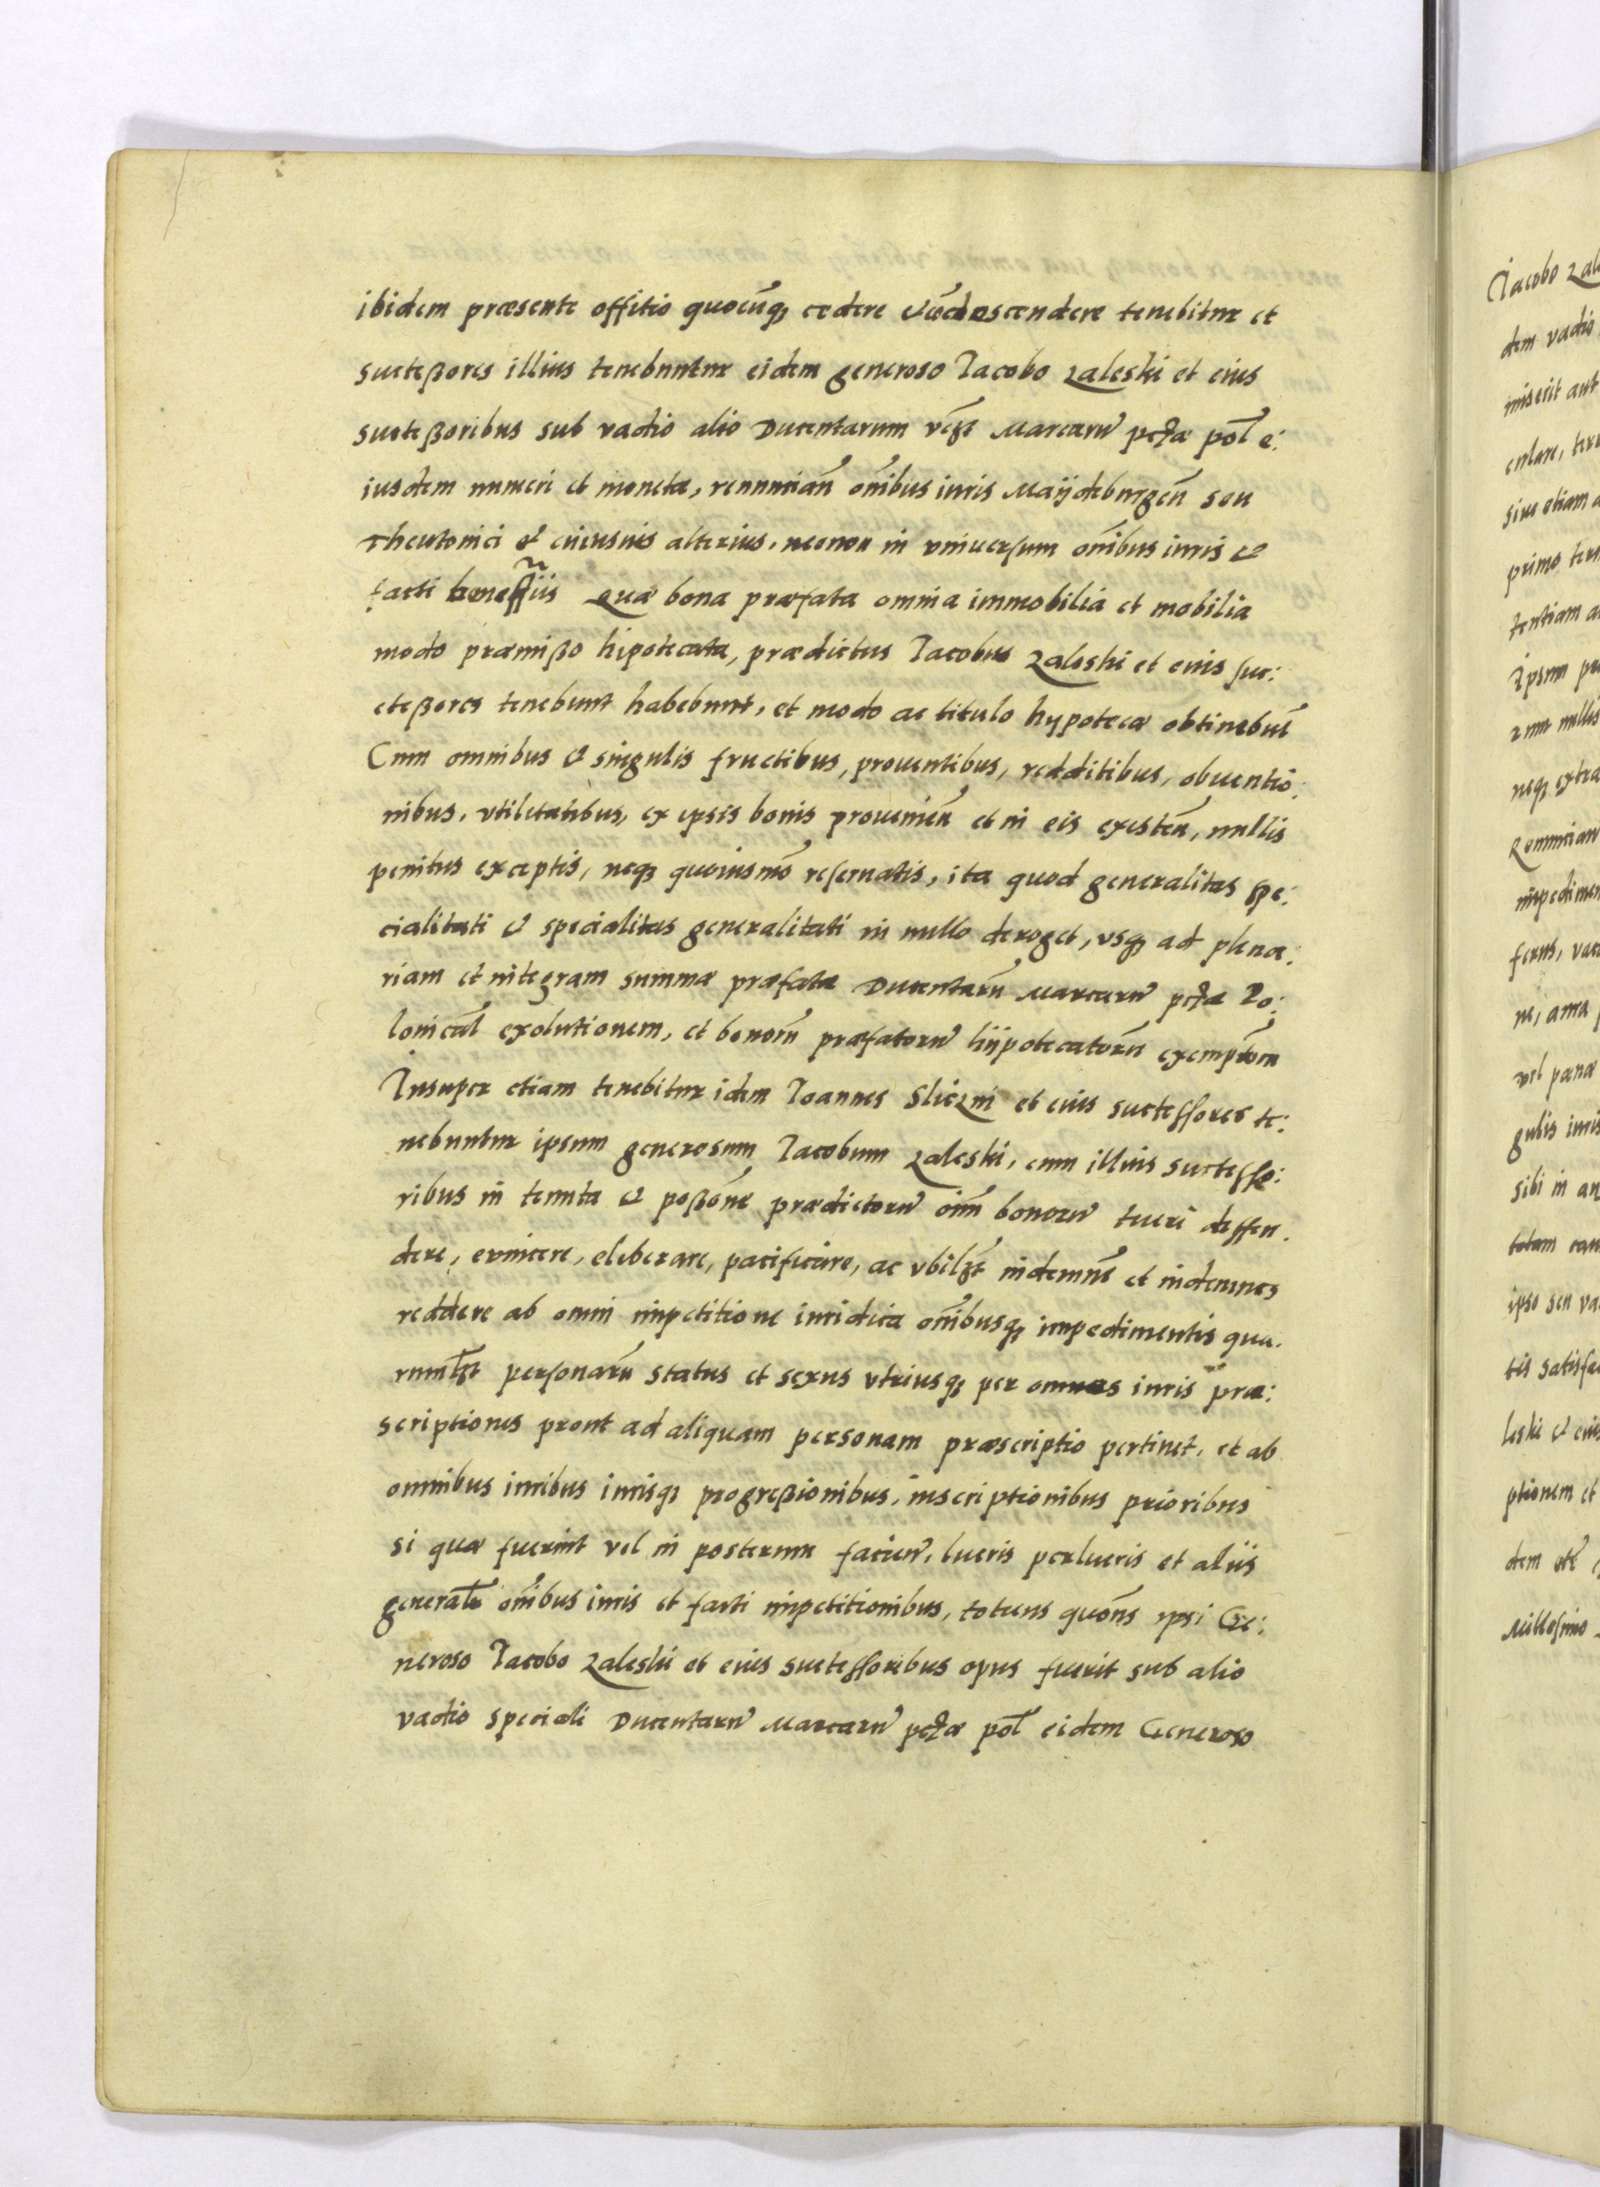 ibidem præsente offitio quocūq; cedere condescendere tenebitur et
succeßores illius tenebuntur eidem generoso Jacobo Zaleski et eius
succeßoribus sub vadio alio Ducentarum Marcarū pol e:
iusdem numeri et monetæ, renuncian̄ om̄ibus iuris Maijdeburgen̄ seu
Theutonici & cuiusuis alterius, necnon in vniuersum om̄ibus iuris &
facti Quæ bona præfata omnia immobilia et mobilia
modo præmißo hipotecata, prædictus Jacobus Zaleski et eius suc:
ceßores tenebunt habebunt, et modo ac titulo hypotecæ obtinebūt
Cum omnibus & singulis fructibus, prouentibus, redditibus, obuentio:
nibus, vtilitatibus, ex ipsis bonis prouenien̄ et in eis existen̄, nullis
penitus exceptis, neq; quouismō reseruatis, ita quod generalitas spe:
cialitati & specialitas generalitati in nullo deroget, vsq; ad plena:
riam et integram summæ præfatæ Ducentarū Marcarū Po:
lonical exolutionem, et bonorū præfatorū hijpotecatorū exemptiōem
Insuper etiam tenebitur idem Joannes Sliczni et eius successores te:
nebuntur ipsum generosum Jacobum Zaleski, cum illius successo:
ribus in tenuta & poßōne prædictorū oīm bonorū tueri deffen.
dere, euincere, eliberare, pacificare, ac vbilꝫt indemnē et indemnes
reddere ab omni impetitione iuridica om̄ibusq; impedimentis qua.
rumlꝫt personarū status et sexus vtriusq; per omnes iuris præ:
scriptiones prout ad aliquam personam præscriptio pertinet, et ab
omnibus iuribus iurisq; progreßionibus, inscriptionibus prioribus
si quæ fuerint vel in posterum facien̄, lucris perlucris et aliis
general̄r om̄ibus iuris et facti impetitionibus, totiens quōns ipsi Ge:
neroso Jacobo Zaleski et eius successoribus opus fuerit sub alio
vadio speciali Ducentarū Marcarū pol eidem Generoso
Jacobo Zal
dem vadio
miserit aut
sius etiam
primo
tentiam
Ipsum
neq; extra
Renuncian
impedimen
ne,
vel pœnæ
gulis iuris
sibi in
totam
ipso seu
tis satisfa
leski & eius
ptionem et
dem
Millesimo